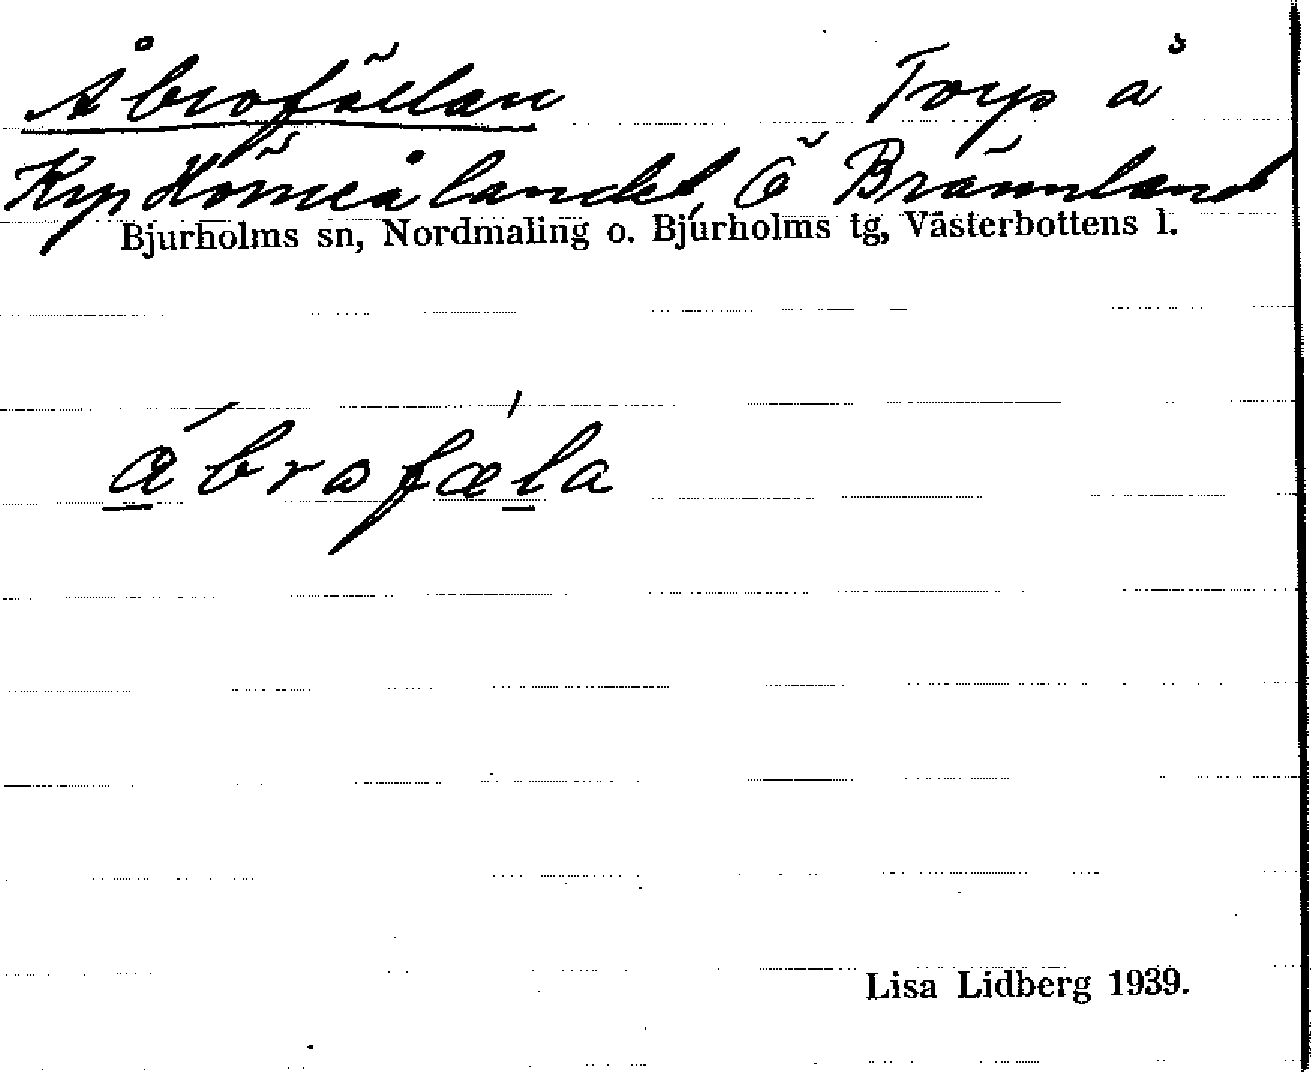 Åbrofällan Torp å
Krp Hörneålandet, Ö Brännland
Bjurholms sn, Nordmaling o. Bjurholms tg, Västerbottens l.
åbrofæla
Lisa Lidberg 1939.